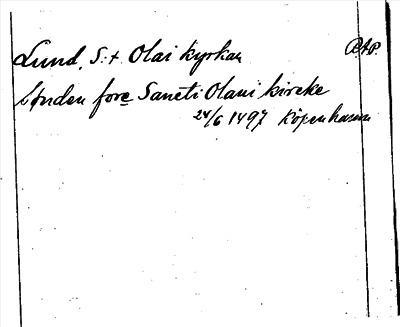 Lund, S:t Olai kyrkan R.A.P.
lunden fore Sancti Olaui kircke
24/6 1497 Köpenhamn